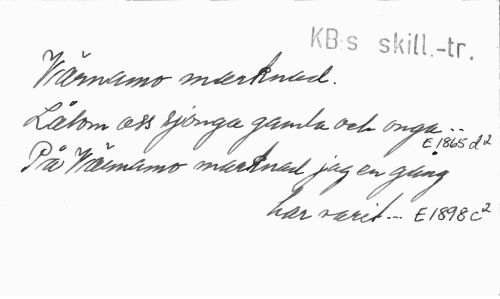 KB:s skill.-tr.
Värnamo marknad.
Låtom oss sjunga gamla och onga...
E 1865 d²
På Värnamo marknad jag en gång
har varit... E 1898 c²